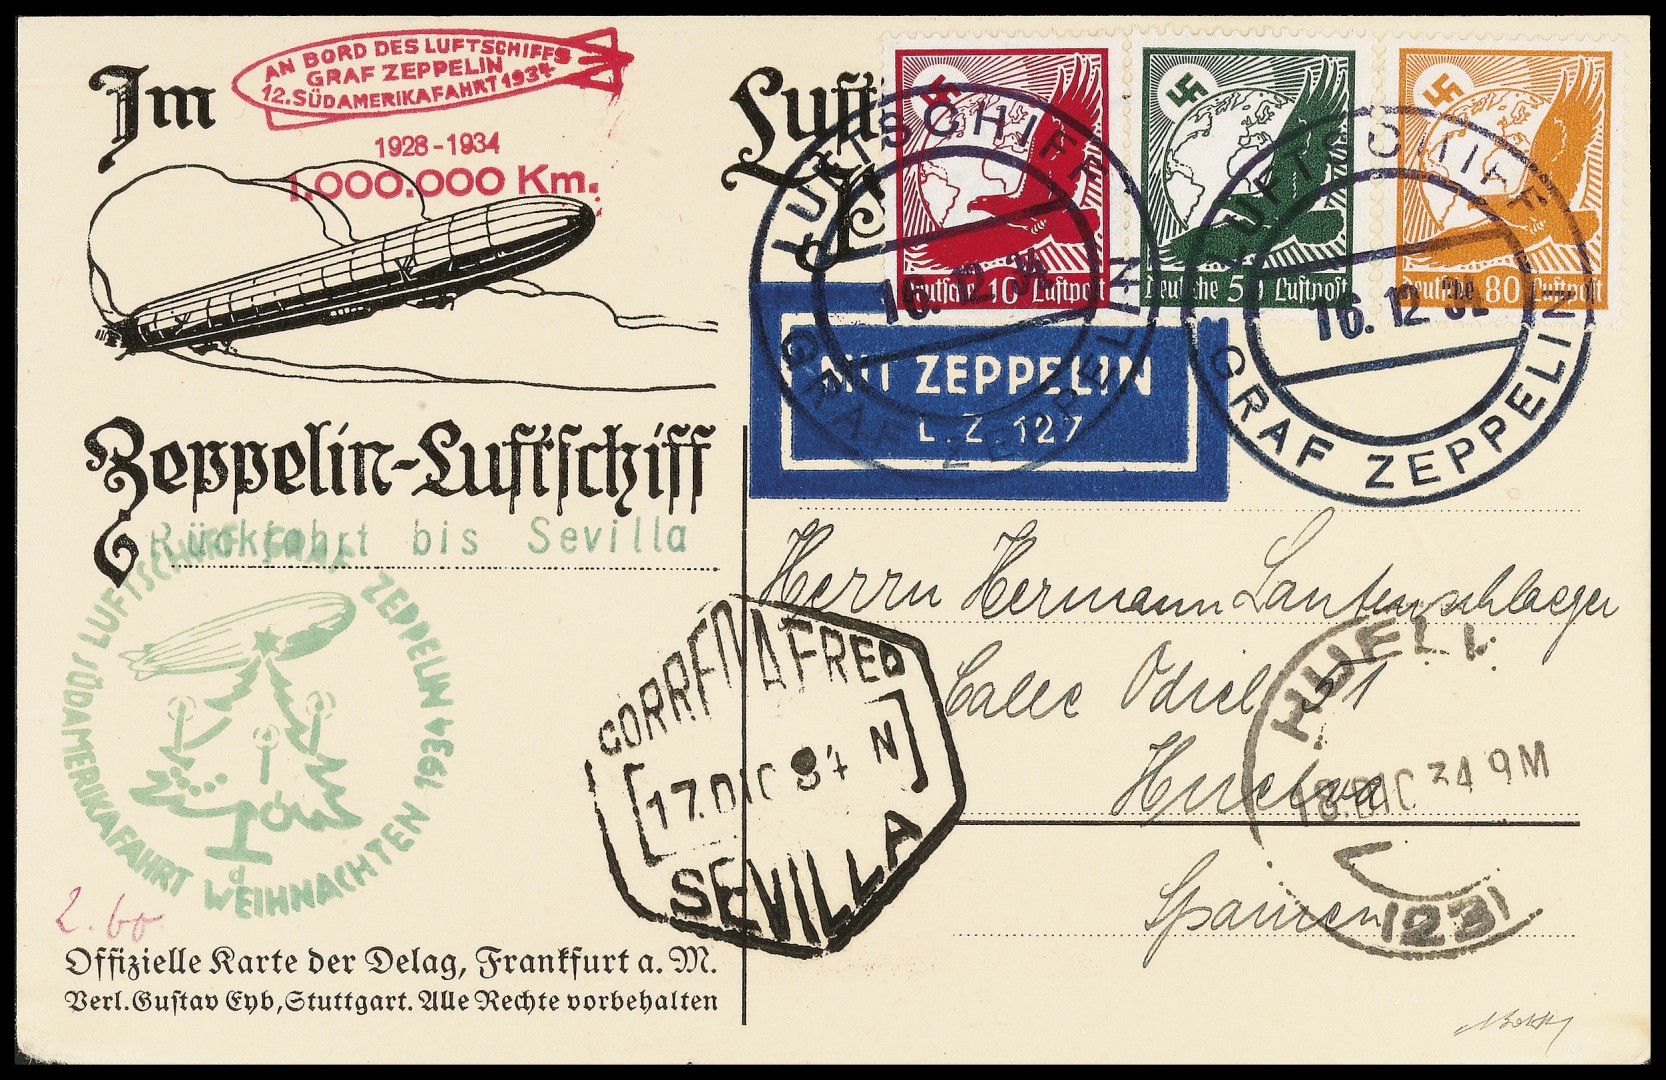 Im
AN BORD DES LUFTSCHIFFS
GRAF ZEPPELIN
12. SÜDAMERIKAFAHRT 1934
1928-1934
1.000.000 Km.
Zeppelin-Luftschiff
Rückfahrt bis Sevilla
LUFTSCHIFF GRAF ZEPPELIN 1934
WEIHNACHTEN
SÜDAMERIKAFAHRT
d
2.60
Offizielle Karte der Delag, Frankfurt a. M.
Verl. Gustav Eyb, Stuttgart. Alle Rechte vorbehalten
Deutsche 10 Luftpost
Deutsche 50 Luftpost
Deutsche 80 Luftpost
LUFTSCHIFF
16.12.34
GRAF ZEPPELIN
LUFTSCHIFF
16.12.34
GRAF ZEPPELIN
MIT ZEPPELIN
L.Z 127
Herrn Hermann Lautenschlaeger
Calle Odiel 51
Huelva
Spanien
CORREO AEREO
17.DIC 34 N
SEVILLA
HUELVA
18.DIC 34 9M
(23)